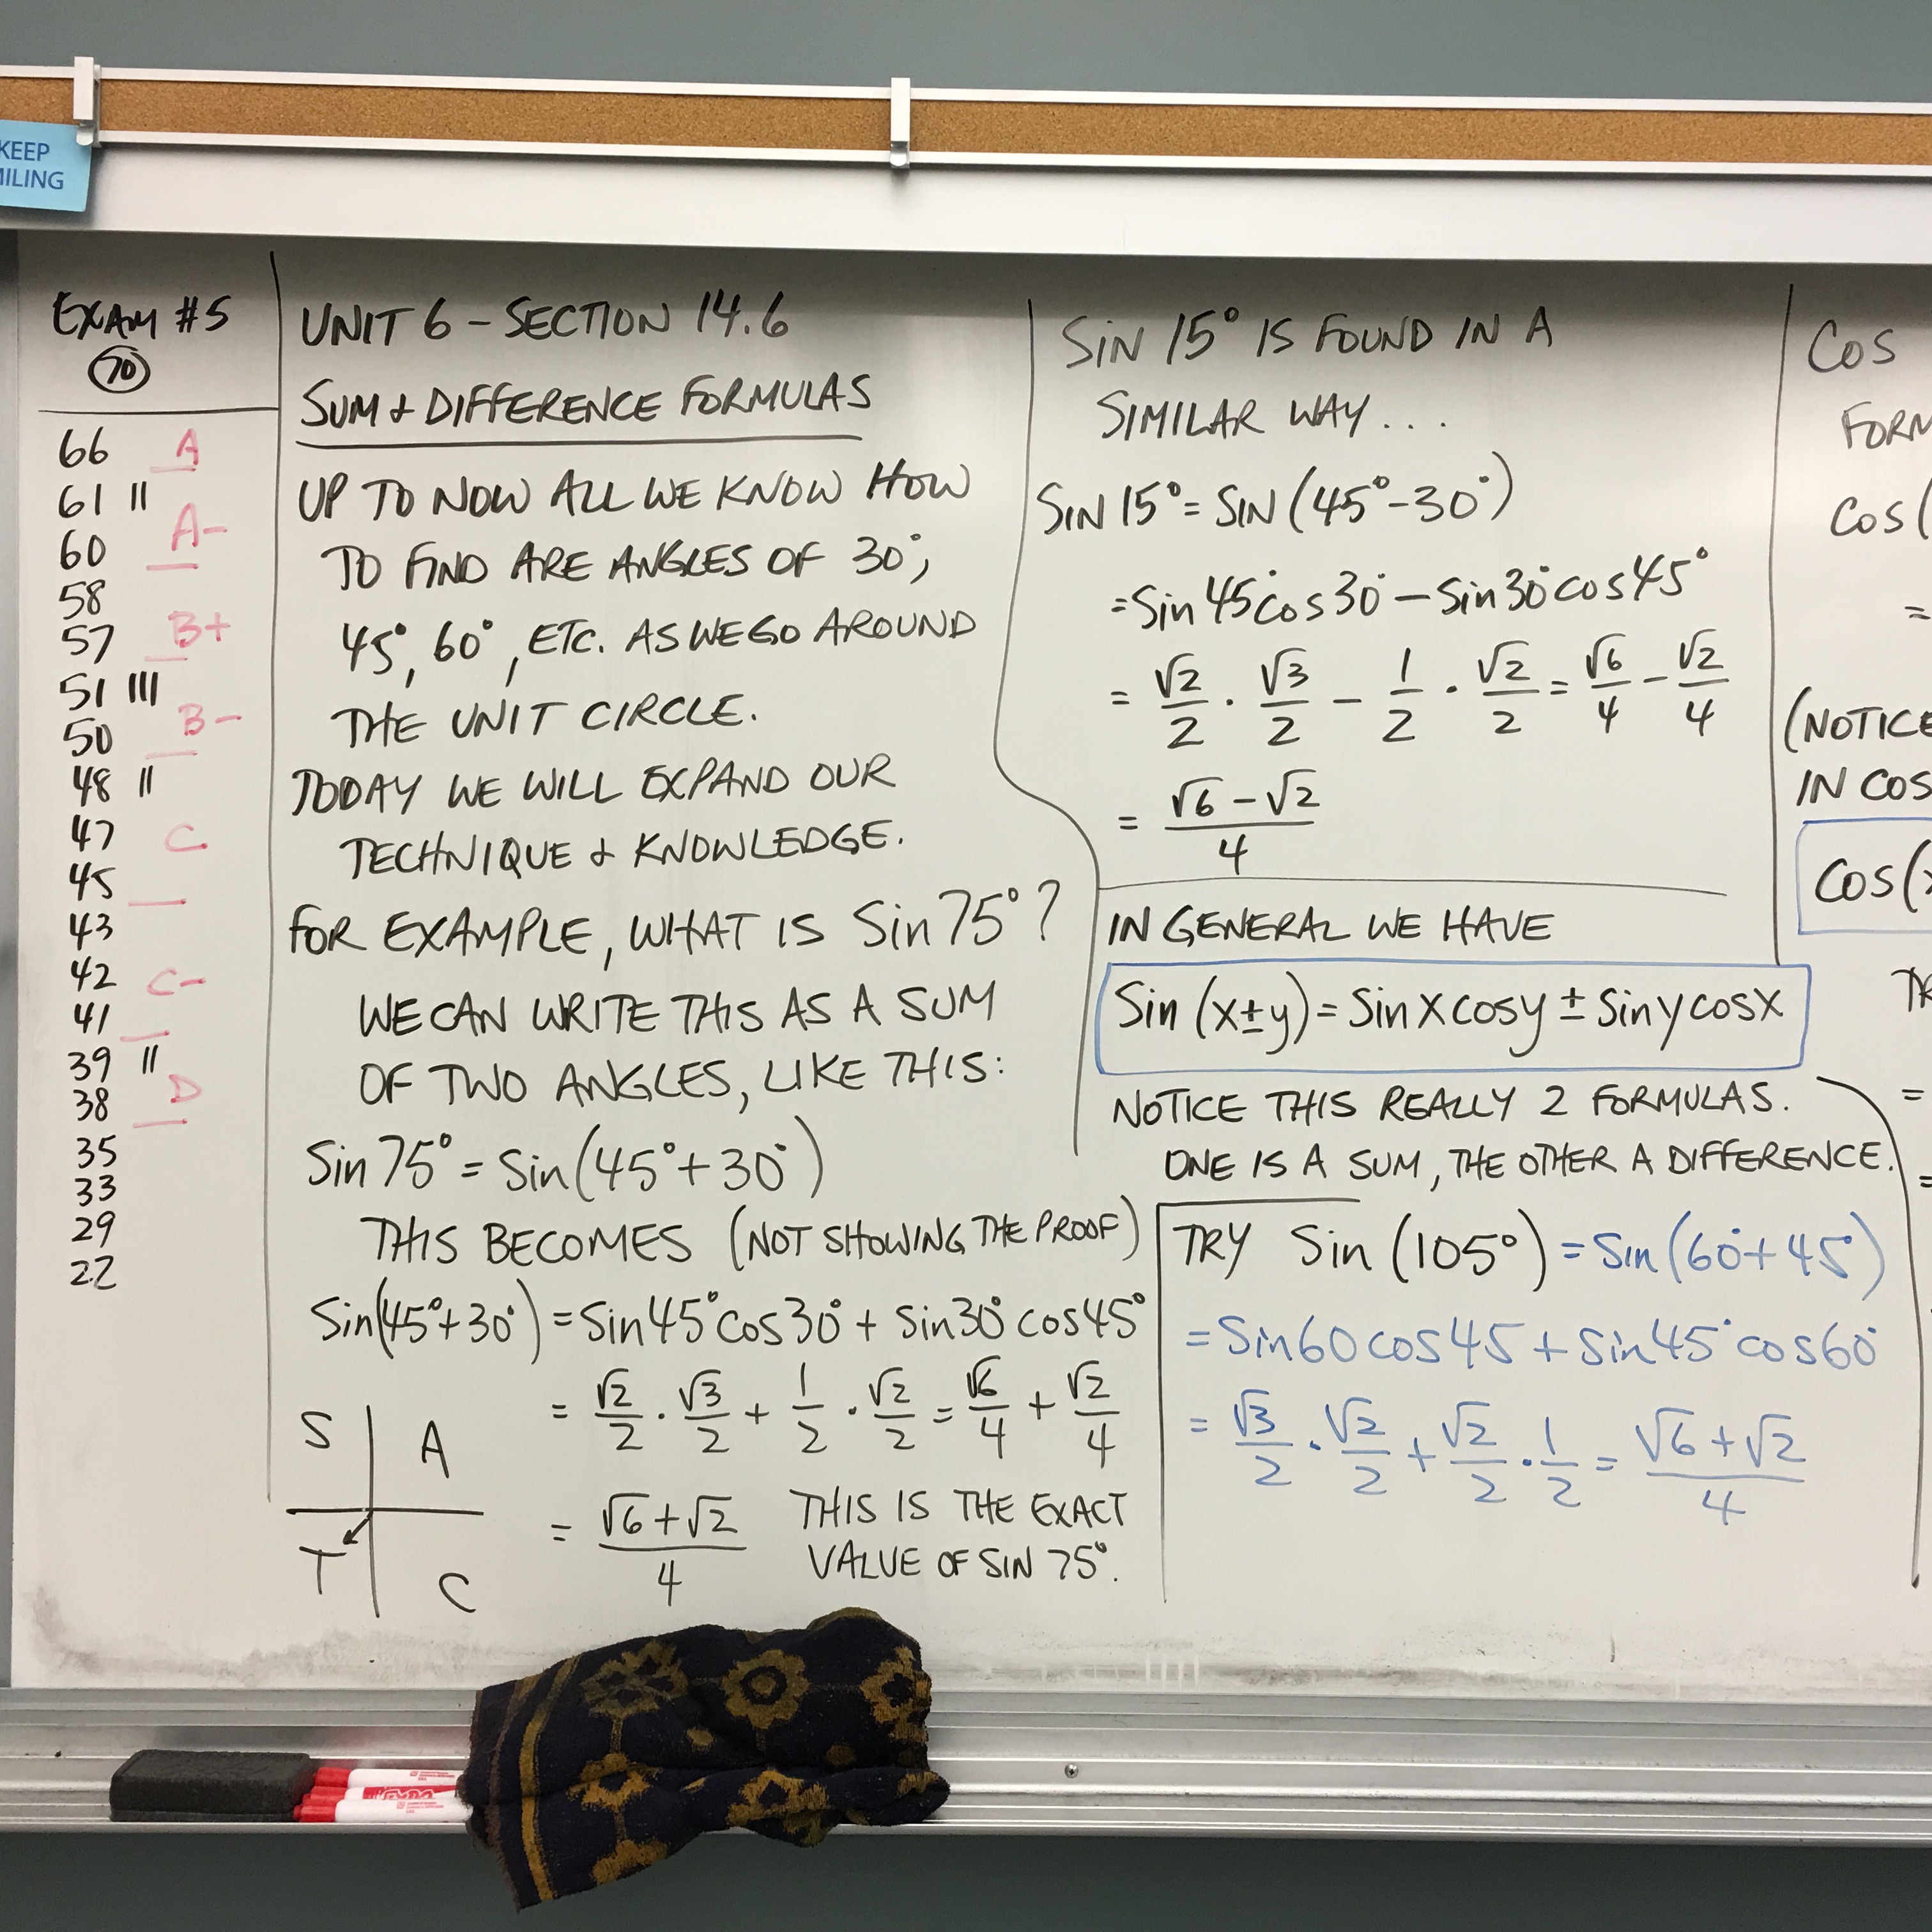 KEEP
MILING
EXAM #5
70
66 A
61 ||
A-
60
58
57 B+
51 |||
50 B-
48 ||
47 C
45
43
42 C-
41
39 ||
38 D
35
33
29
22
UNIT 6 - SECTION 14.6
SUM & DIFFERENCE FORMULAS
UP TO NOW ALL WE KNOW HOW
TO FIND ARE ANGLES OF 30°,
45°, 60°, ETC. AS WE GO AROUND
THE UNIT CIRCLE.
TODAY WE WILL EXPAND OUR
TECHNIQUE & KNOWLEDGE.
FOR EXAMPLE, WHAT IS Sin 75°?
WE CAN WRITE THIS AS A SUM
OF TWO ANGLES, LIKE THIS:
Sin 75° = Sin(45°+30°)
THIS BECOMES (NOT SHOWING THE PROOF)
Sin(45°+30°) = Sin45°cos30° + sin30°cos45°
= √2/2 · √3/2 + 1/2 · √2/2 = √6/4 + √2/4
= (√6+√2)/4 THIS IS THE EXACT
VALUE OF SIN 75°.
S A
T C
Sin 15° IS FOUND IN A
SIMILAR WAY...
SIN 15° = SIN (45°-30°)
= Sin45°cos30° - Sin30°cos45°
= √2/2 · √3/2 - 1/2 · √2/2 = √6/4 - √2/4
= (√6-√2)/4
IN GENERAL WE HAVE
Sin (x±y) = Sinxcosy ± Sinycosx
NOTICE THIS REALLY 2 FORMULAS.
ONE IS A SUM, THE OTHER A DIFFERENCE.
TRY Sin (105°) = Sin(60°+45°)
= Sin60cos45 + Sin45°cos60°
= √3/2 · √2/2 + √2/2 · 1/2 = (√6+√2)/4
Cos
FORM
Cos(
=
(NOTICE
IN COS
Cos(x
TR
=
=
EXPO